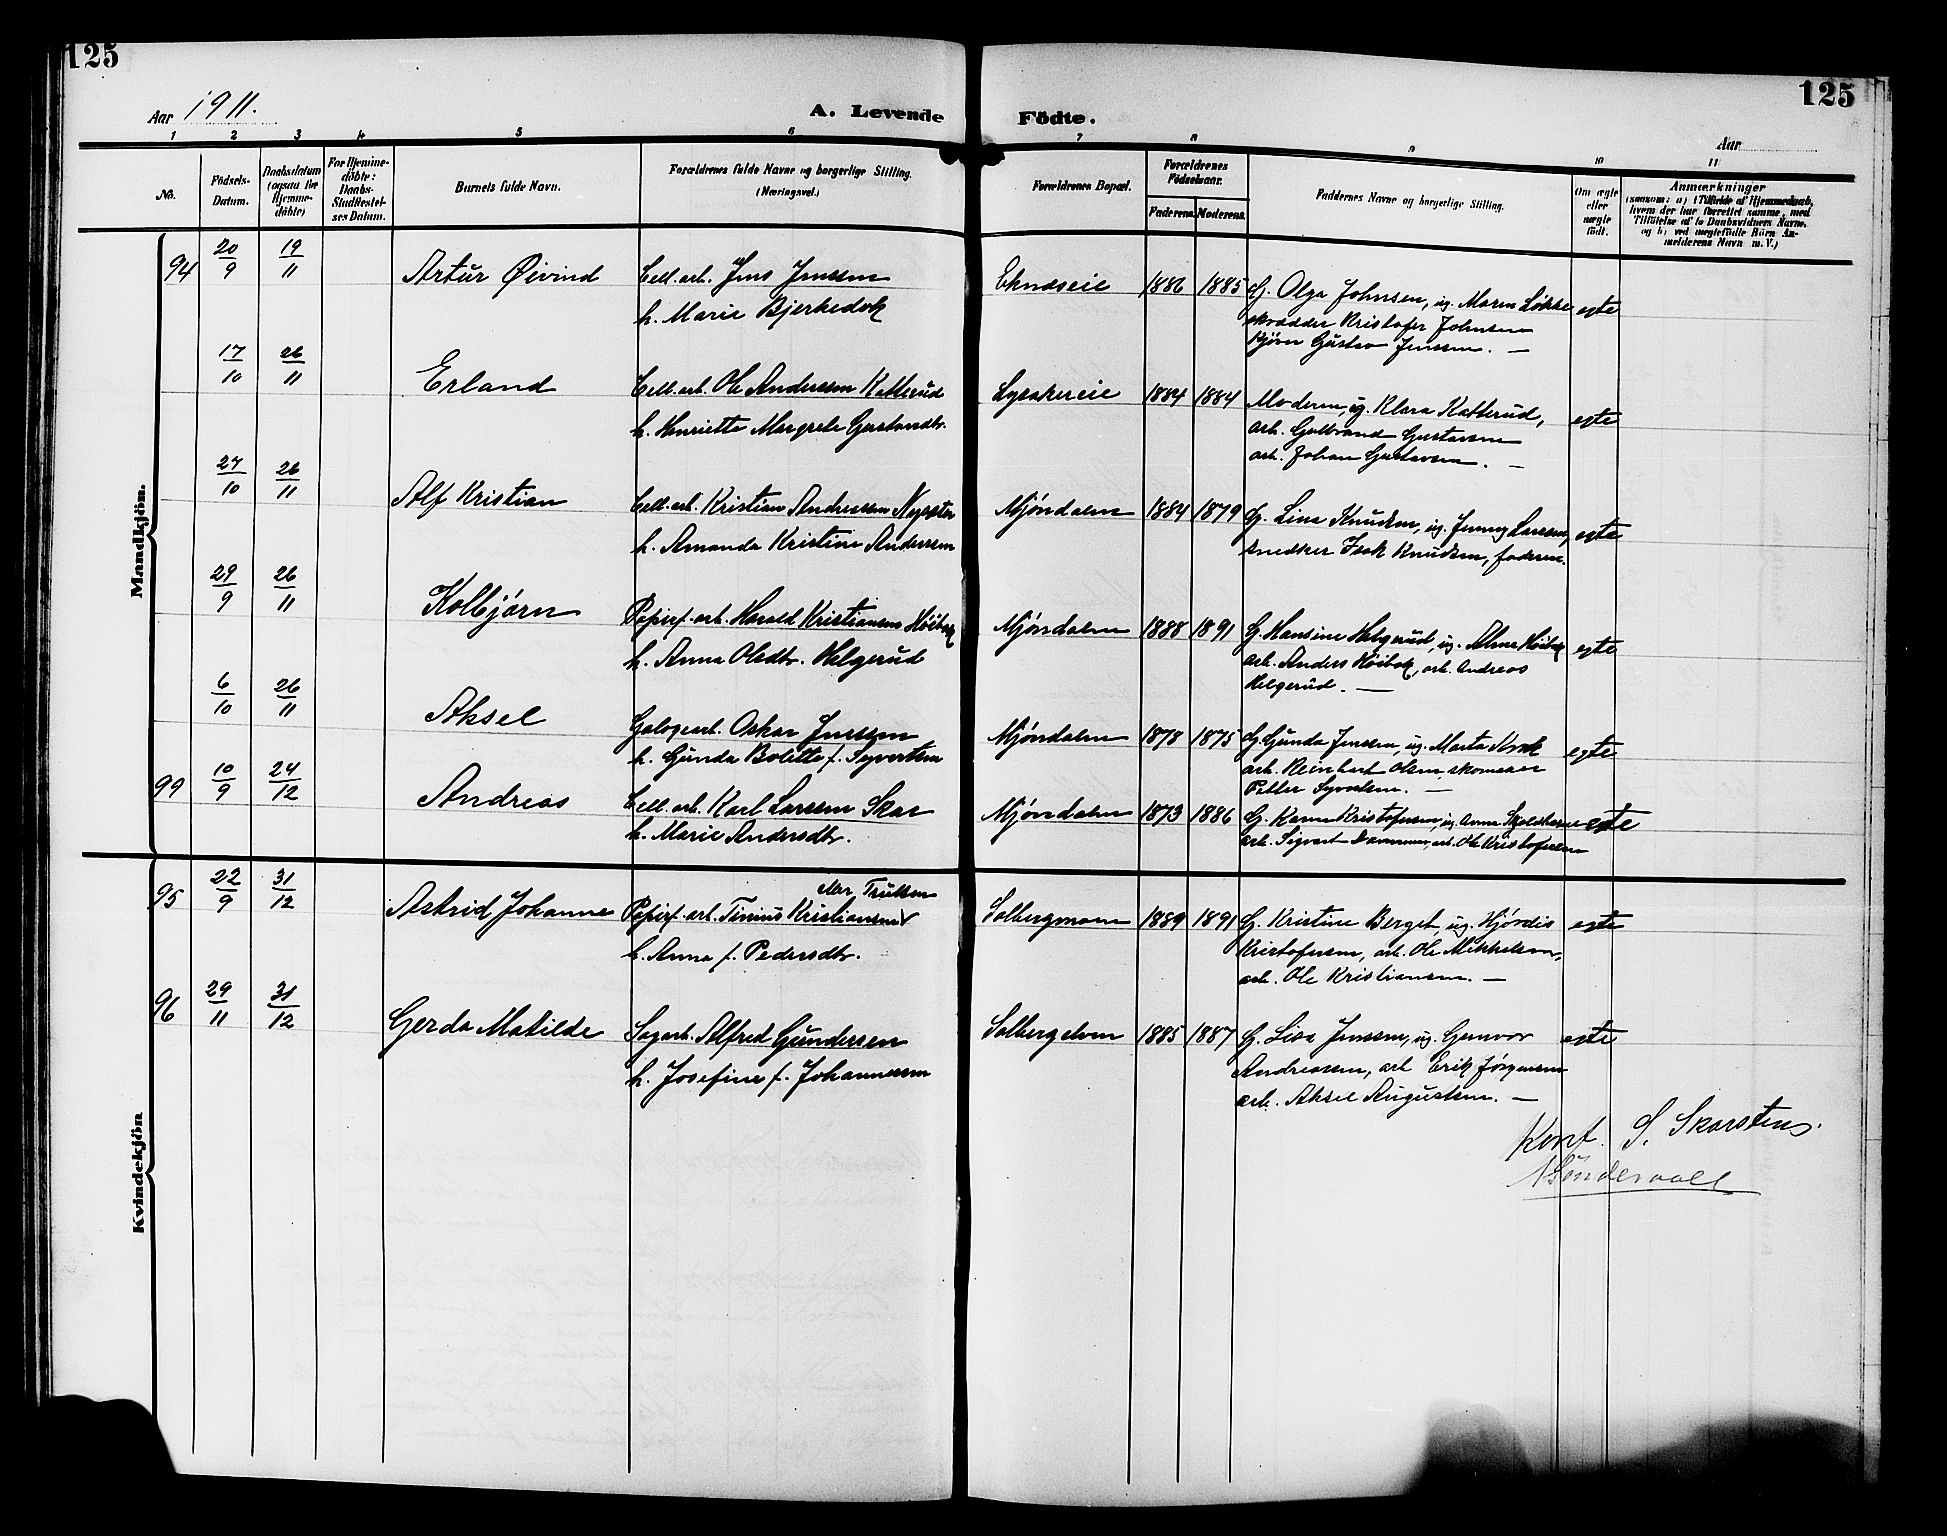 125
125
Aar 1911.
A. Levende Födte.
Aar
1 2 3 4 5 6 7 8 9 10 11
No.
Födsels-Datum.
Daabsdatum (ogsaa for Hjemme-döbte)
For Hjemme-döbte: Daabs-Stadfæstel-ses Datum.
Barnets fulde Navn.
Forældrenes fulde Navne og borgerlige Stilling. (Næringsvei.)
Forældrenes Bopæl.
Forældrenes Födselsaar.
Faderens. Moderens.
Faddernes Navne og borgerlige Stilling.
Om ægte eller uægte födt.
Anmærkninger
(saasom: a) i Tilfælde af Hjemmedaab, hvem der har forrettet samme, med Tilföielse af to Daabsvidners Navne, og b) ved uægtefödte Börn An-melderens Navn m. V.)
Mandkjön.
94 20/9 19/11 Artur Øivind Cell.arb. Jens Jenssen
h. Marie Bjerkedok
Eknæseie 1886 1885 G. Olga Johnsen, ug. Maren Løkke
skrædder Kristofer Johnsen
Bjørn Gustav Jenssen. —
egte
17/10 26/11 Erland Cell.arb. Ole Anderssen Katterud
h. Henriette Margrete Gustavdtr.
Lysakereie 1884 1884 Moderen, ug. Klara Katterud,
arb. Gulbrand Gustavsen
arb. Johan Gustavsen. —
egte
27/10 26/11 Alf Kristian Cell.arb. Kristian Andreassen
h. Amanda Kristine Anderssen
Mjøndalen 1884 1879 G. Lina Knudsen, ug. Jenny Larssen,
snedker Isak Knudsen, faderen.
egte
29/9 26/11 Kolbjørn Papirf.arb. Harald Kristiansen Høibak
h. Anna Olsdtr. Helgerud
Mjøndalen 1888 1891 G. Hansine Helgerud, ug. Alma Høibak
arb. Anders Høibak, arb. Andreas
Helgerud. —
egte
6/10 26/11 Aksel Galogearb. Oskar Jenssen
h. Gunda Bolette f. Syvertsen
Mjøndalen 1878 1875 G. Gunda Jenssen, ug. Marta
arb. Reinhart Olsen, skomaker
Petter Syvertsen. —
egte
99 10/9 24/12 Andreas Cell.arb. Karl Larssen Skar
h. Marie Andersdtr.
Mjøndalen 1873 1886 G. Karen Kristofersen, ug. Anna
arb. Sigvart arb. Ole Kristofersen
egte
Kvindekjön
95 22/9 31/12 Astrid Johanne Papirf.arb. Tinius Kristiansen Aar Trulsen
h. Anna f. Pedersdtr.
Solbergmoen 1889 1891 G. Kristine Berget, ug. Hjørdis
Kristofersen, arb. Ole Mikkelsen,
arb. Ole Kristiansen. —
egte
96 29/11 31/12 Gerda Matilde Sagarb. Alfred Gundersen
h. Josefine f. Johannessen
Solbergelven 1885 1887 G. Lisa Jenssen, ug. Gunvor
Andreassen, arb Erik Jørgensen
arb. Aksel Augustsen. —
egte
Konf. S. Skarsteins.